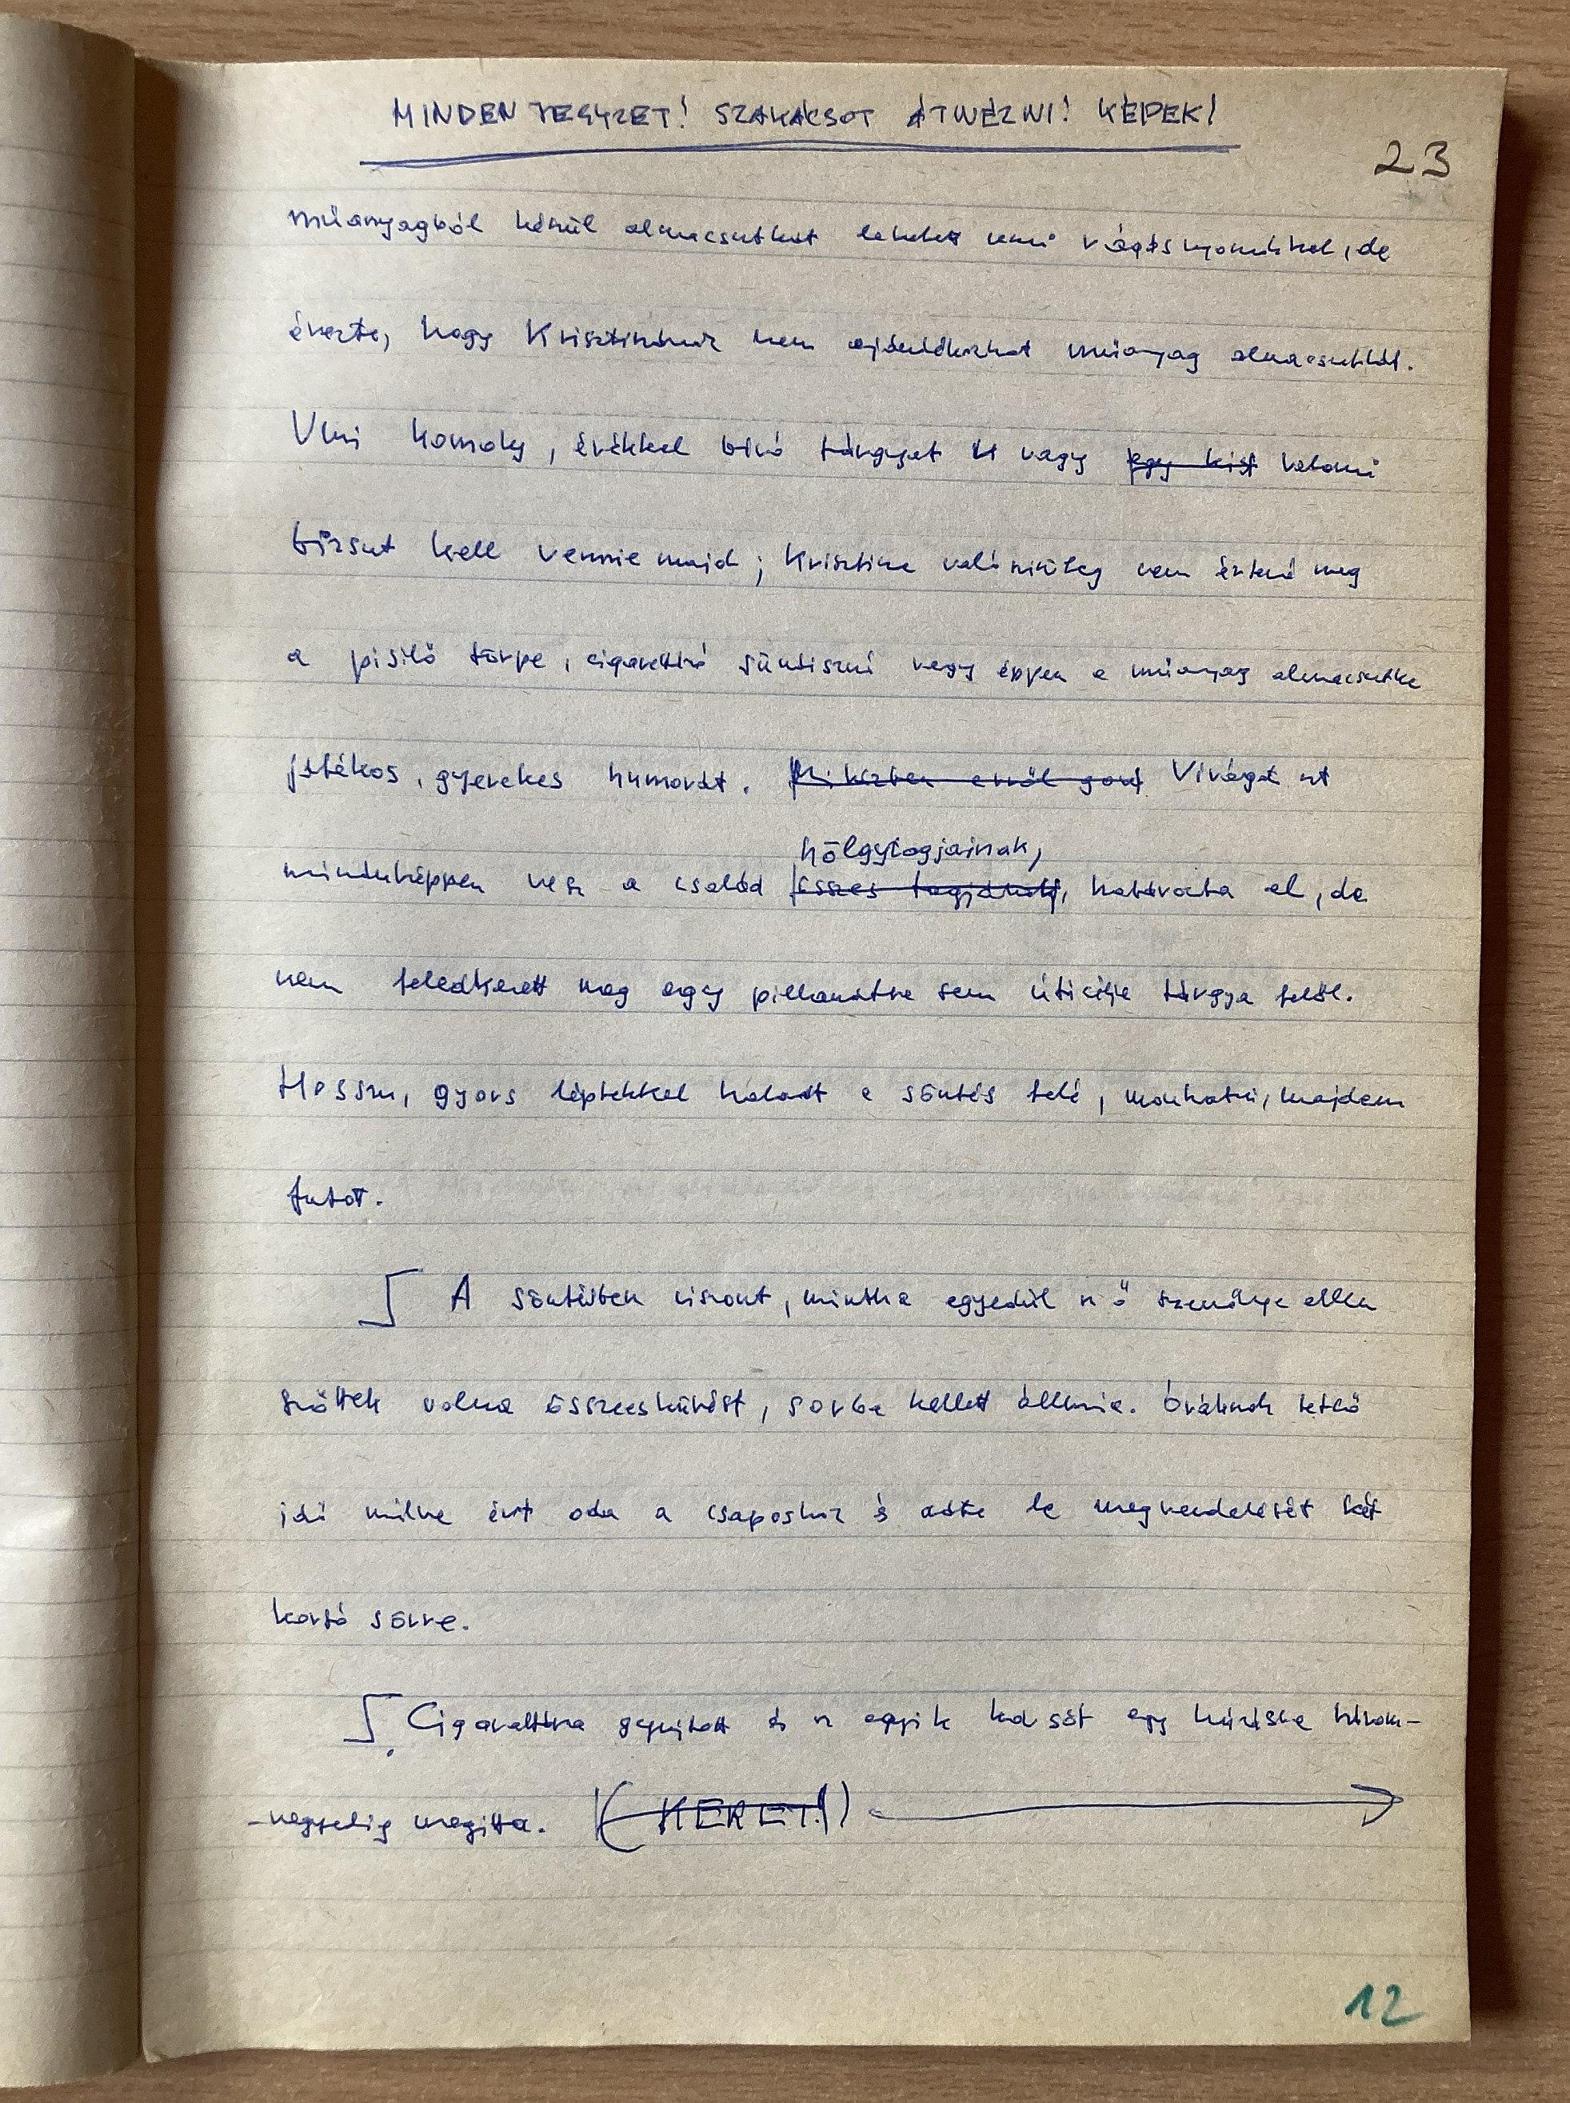 MINDEN JEGYZET! SZAKÁCSOT ÁTNÉZNI! KÉPEK!
23
műanyagból készül almacsutkát lehetett venni vágásnyomokkal, de
érezte, hogy Krisztinának nem ajándékozhat műanyag almacsutkát.
Vmi komoly, értékkel bíró tárgyat vagy egy kist valami
bizsut kell vennie majd; Krisztina valószínűleg nem értené meg
a pisilő törpe, cigarettázó sündisznó vagy éppen a műanyag almacsutka
játékos, gyerekes humorát. Miközben erről gond Virágot azt
hölgytagjainak,
mindenképpen vesz a család összes tagjának, határozta el, de
nem feledkezett meg egy pillanatra sem úticélja tárgya felől.
Hosszu, gyors léptekkel haladt a söntés felé, mondhatni, majdnem
futott.
A söntésben viszont, mintha egyedül az ő személye ellen
szőttek volna összeesküvést, sorba kellett állnia. Óráknak tetsző
idő múlva ért oda a csaposhoz és adta le megrendelését két
korsó sörre.
Cigarettára gyujtott és az egyik korsót egy húzásra három-
-negyedig megitta. (KERET!)
12